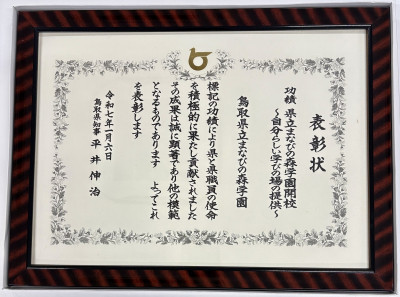 表彰状
功績 県立まなびの森学園開校
～自分らしい学びの場の提供～
鳥取県立まなびの森学園
標記の功績により県と県職員の使命
を積極的に果たし貢献されました
その成果は誠に顕著であり他の模範
となるものであります よってこれ
を表彰します
令和七年一月六日
鳥取県知事 平井伸治